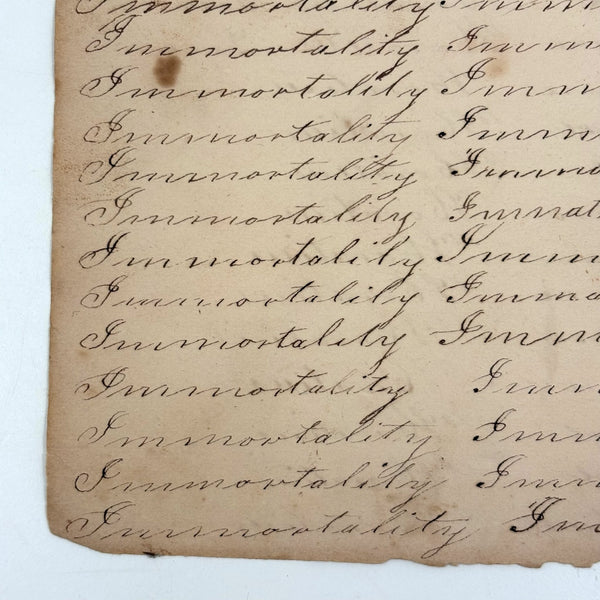 Immortality Imm
Immortality Imm
Immortality Imm
Immortality Imm
Immortality Immo
Immortality Immat
Immortality Imm
Immortality Immo
Immortality Imm
Immortality Imm
Immortality Imm
Immortality Imm
Immortality Im